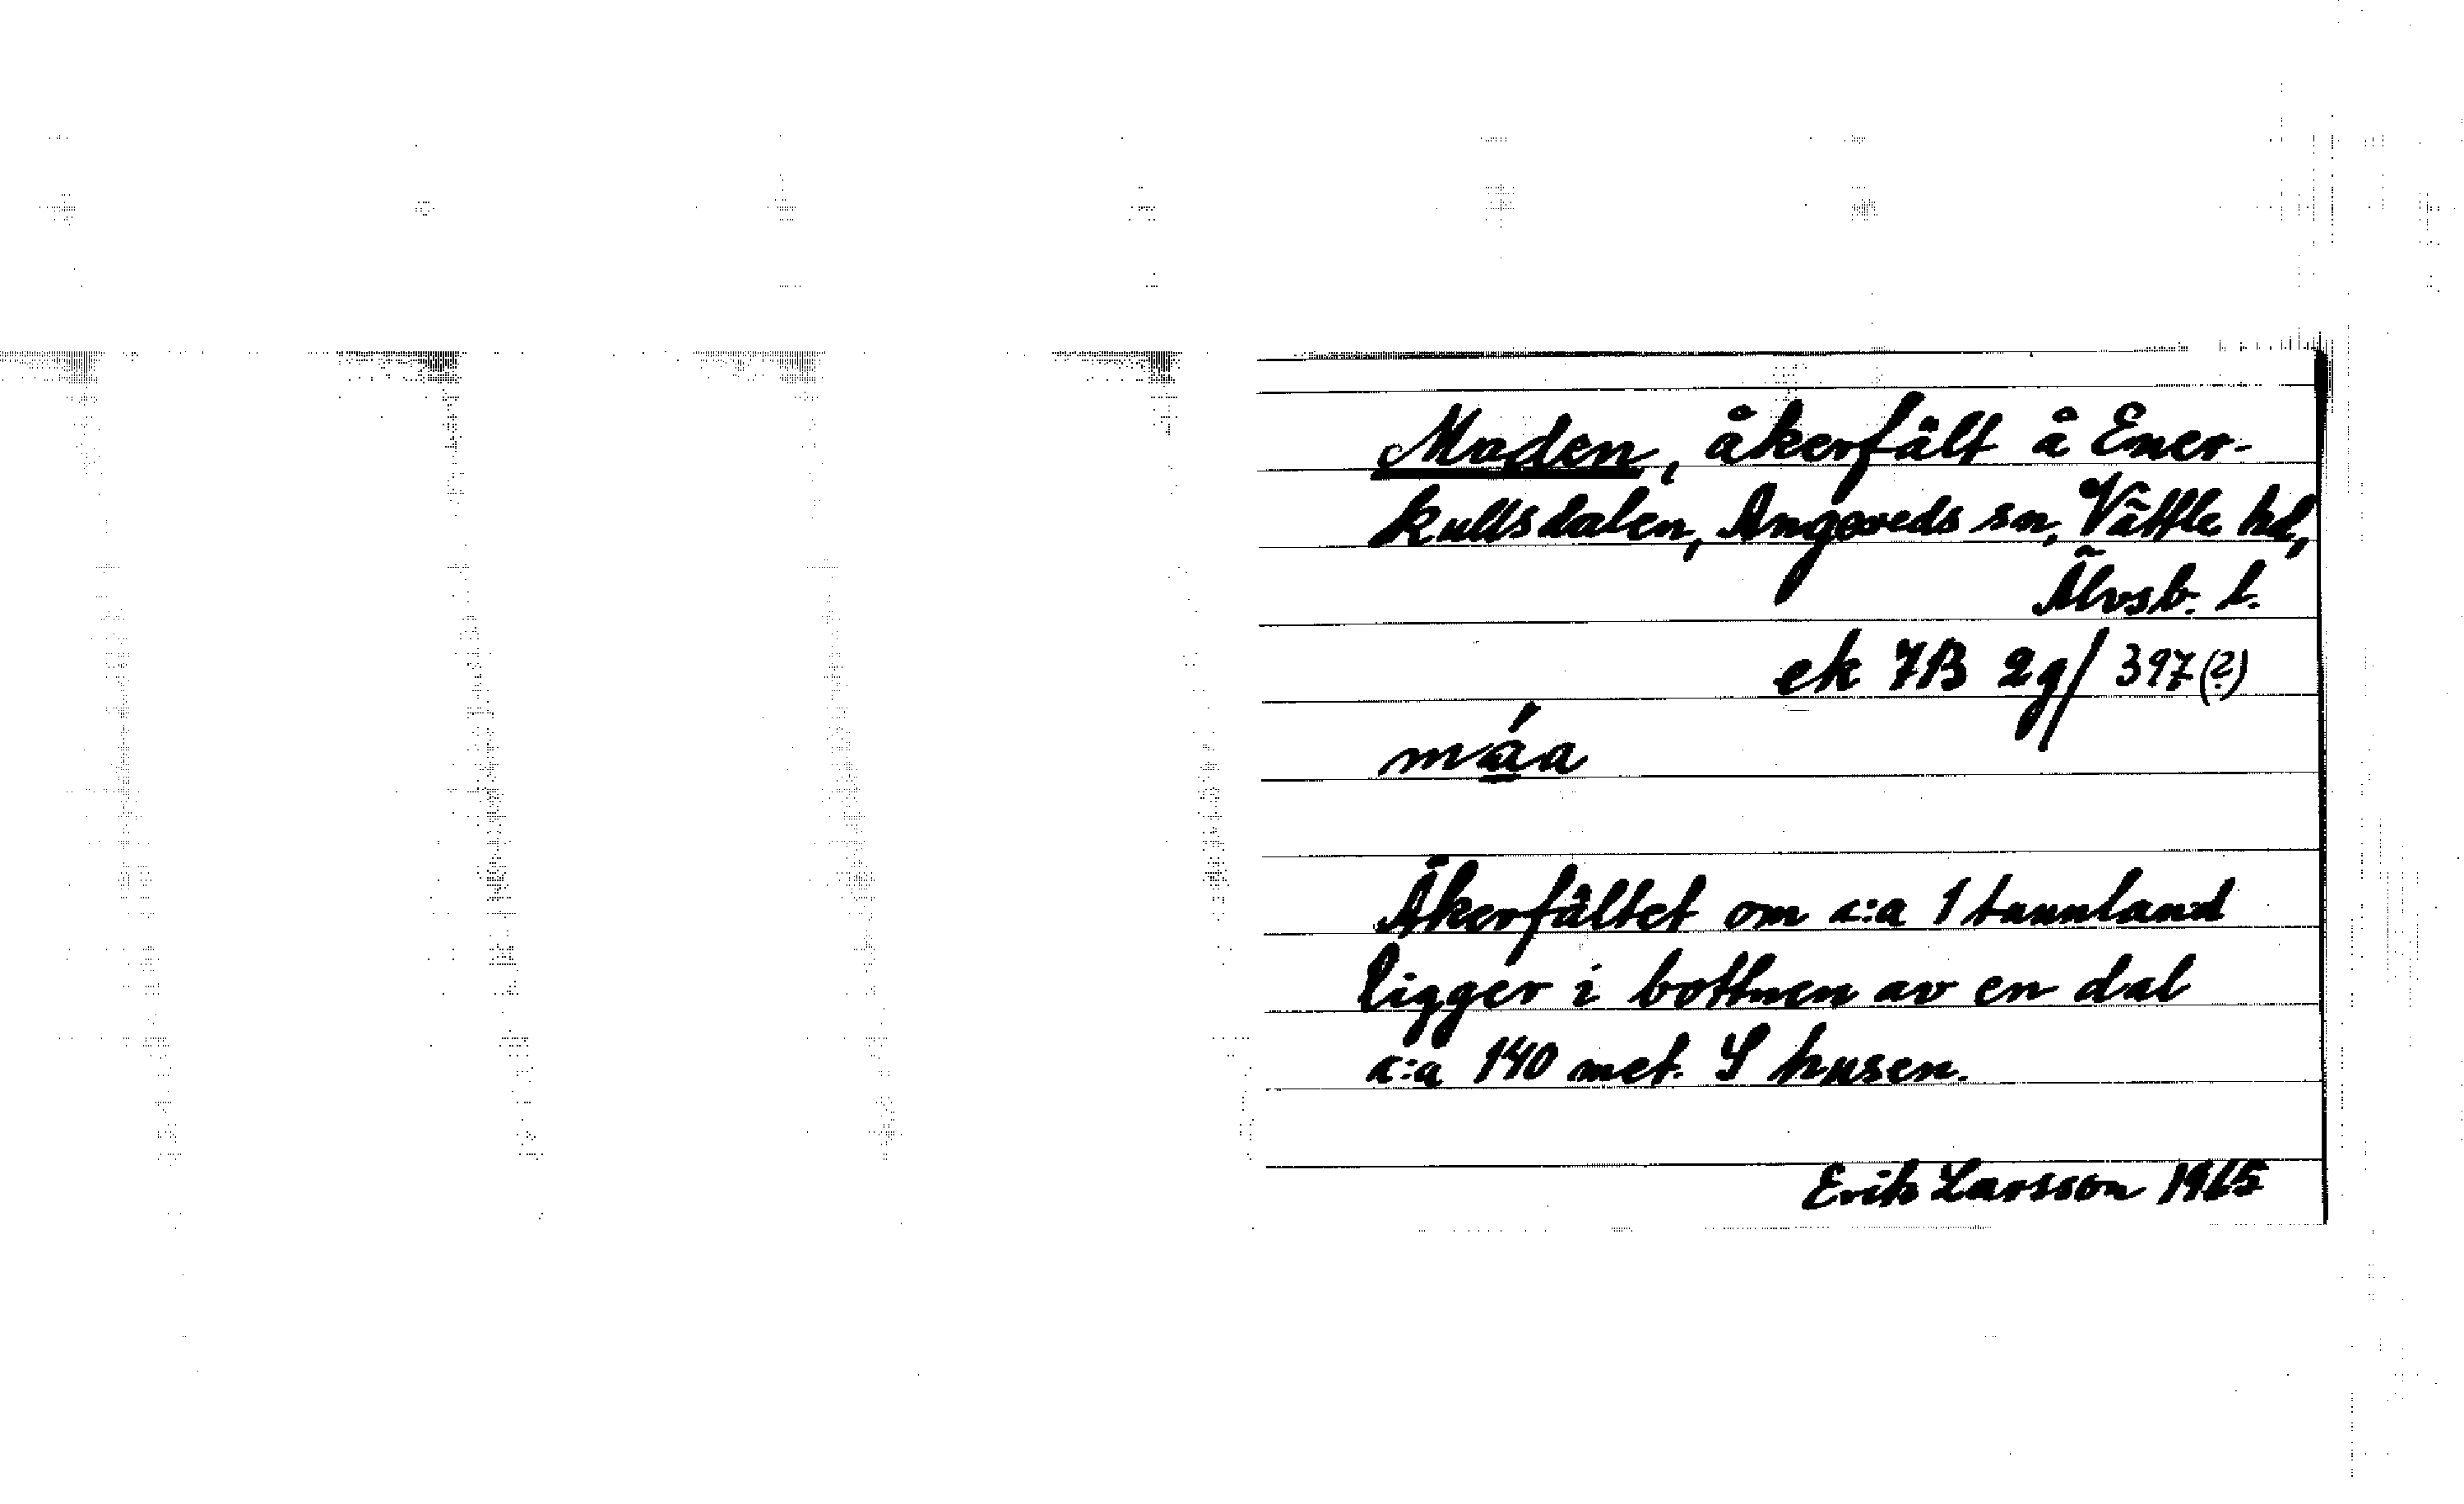 Maden, åkerfält å Ener-
kullsdalen, Angereds sn, Vättle hd,
Älvsb. l.
ek 7B 2g/397(?)
máa
Åkerfältet om c:a 1 tunnland
ligger i bottnen av en dal
c:a 140 met. S husen.
Erik Larsson 1965